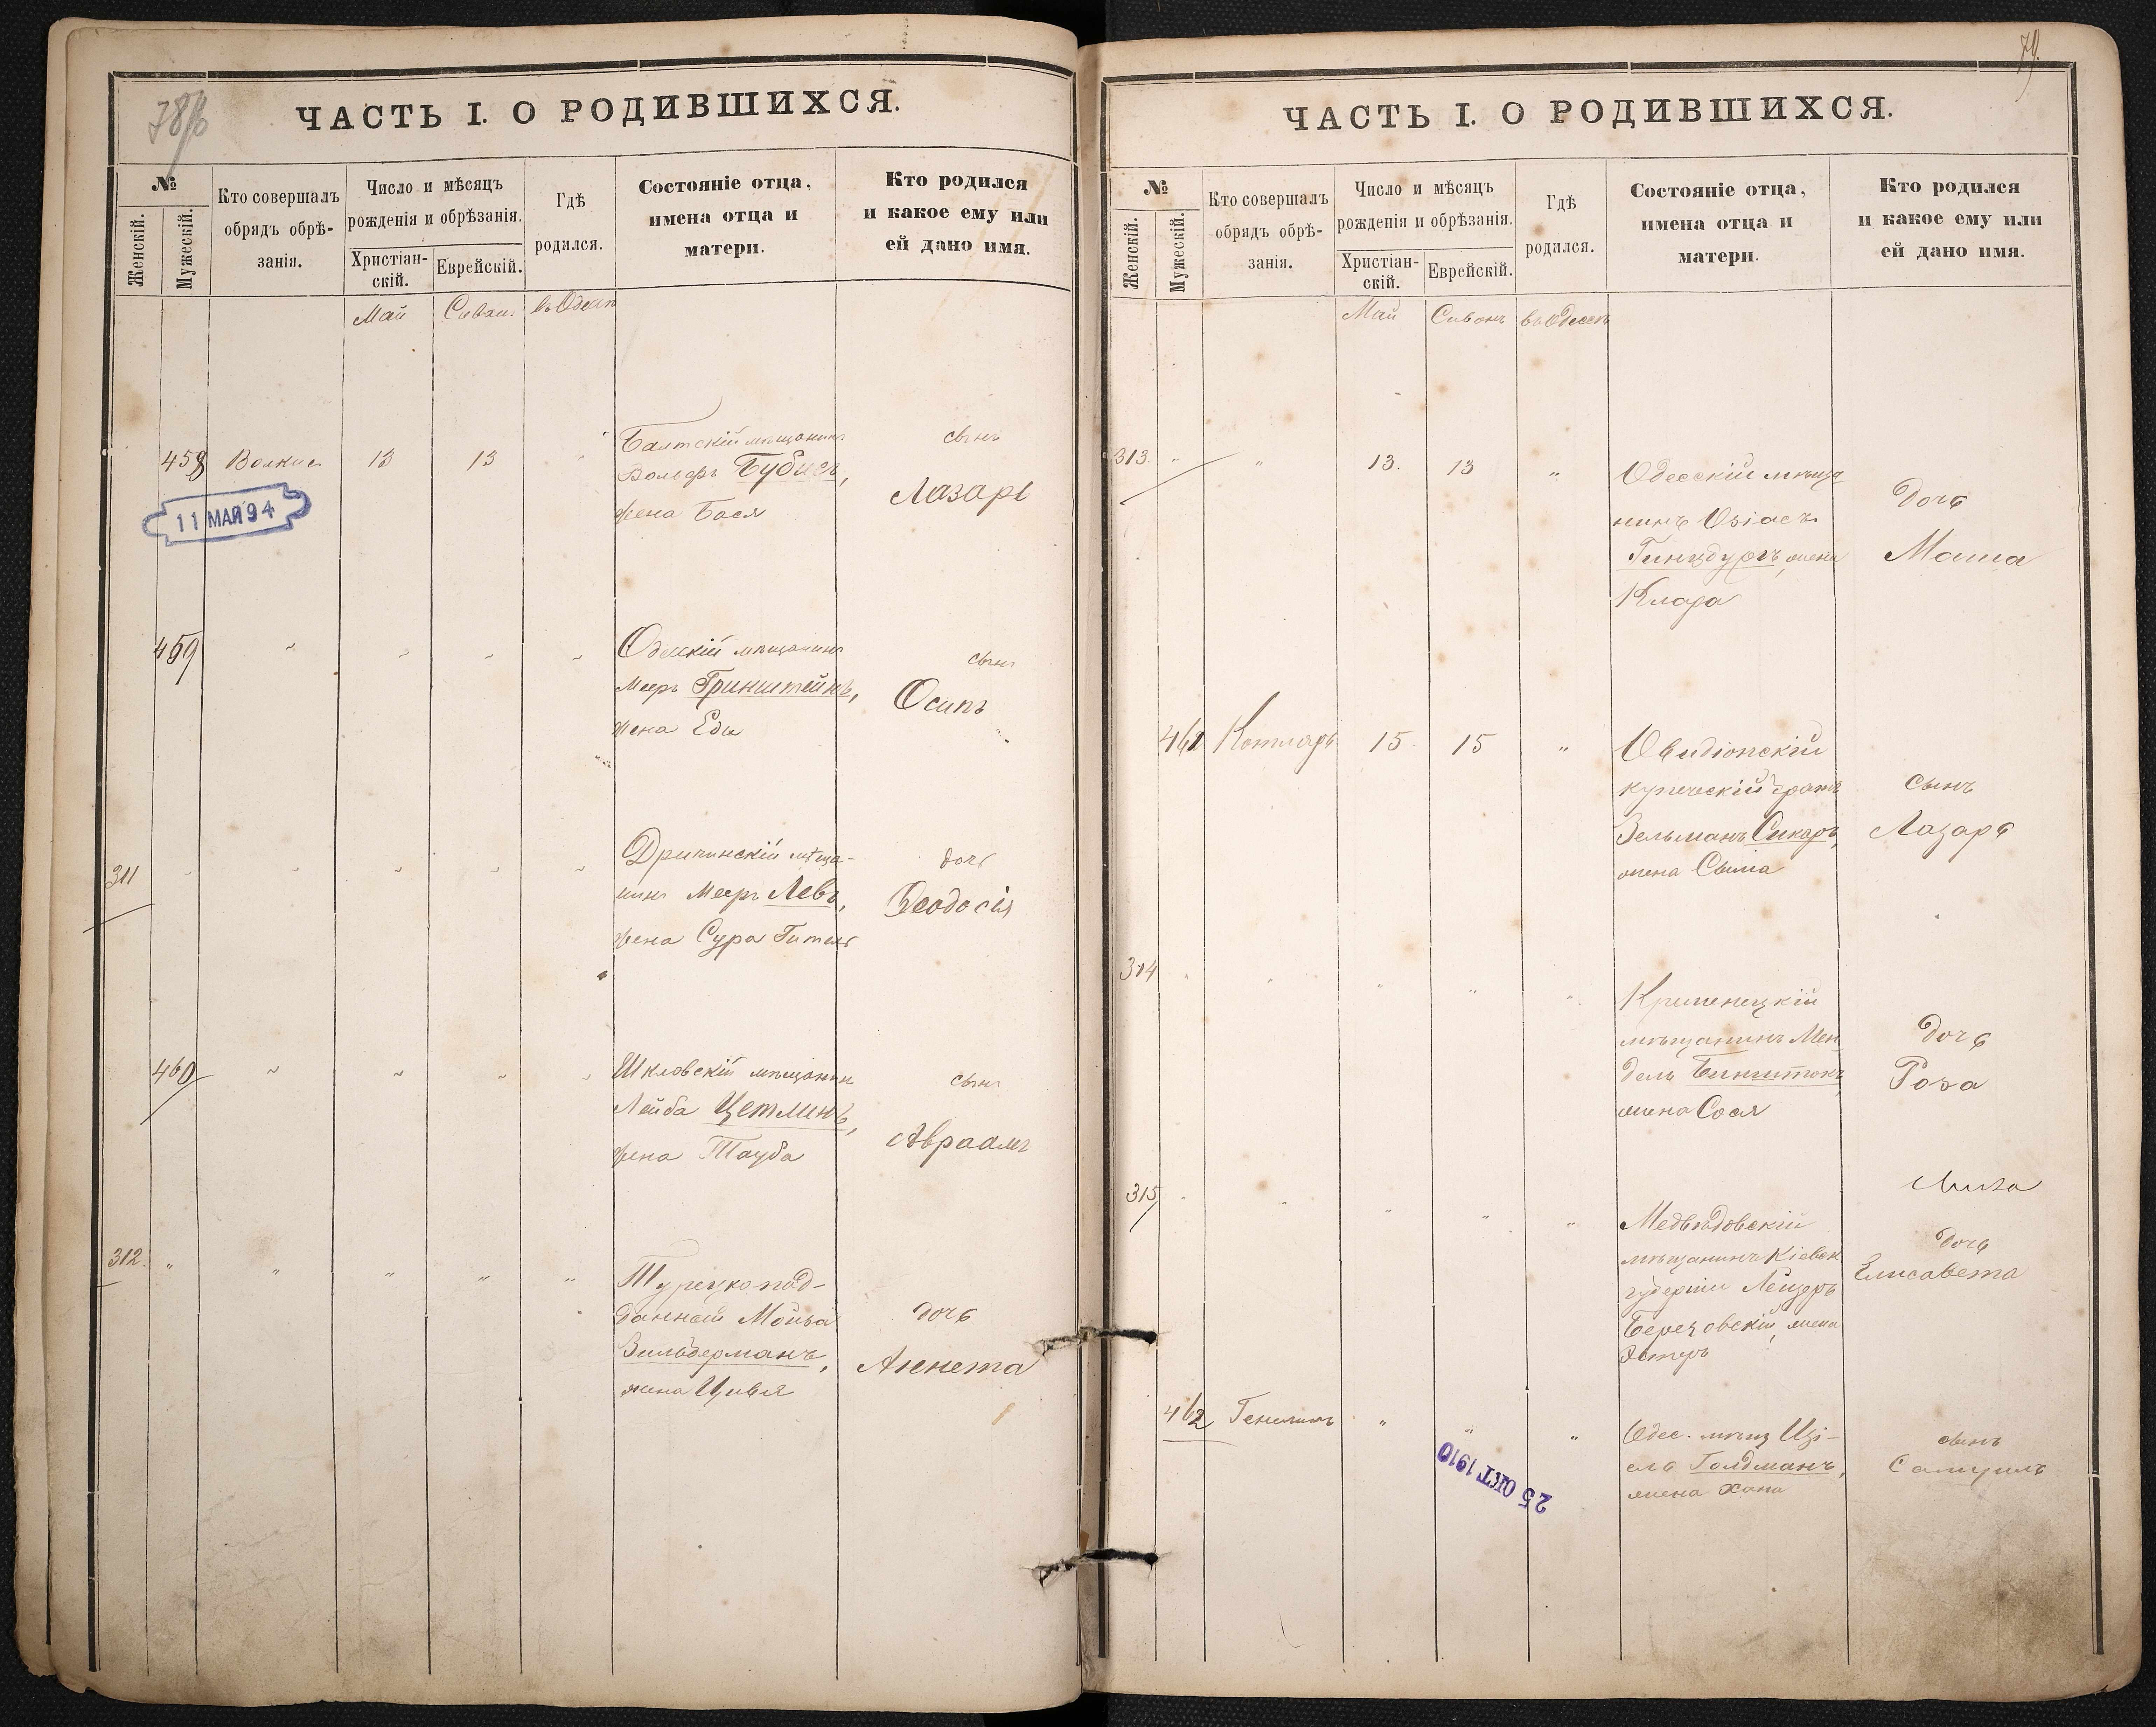 78об
ЧАСТЬ I. О РОДИВШИХСЯ.
№
Женскій.
Мужескій.
Кто совершалъ
обрядъ обрѣ-
занія.
Число и мѣсяцъ
рожденія и обрѣзанія.
Христіан-
скій.
Еврейскій.
Гдѣ
родился.
Состояніе отца,
имена отца и
матери.
Кто родился
и какое ему или
ей дано имя.
Май Сиван. въ Одессѣ
458 Волкис 13 13
Балтскій мѣщанинъ
Вольфъ Бубисъ,
жена Бася
сынъ
Лазарь
11 МАЙ 94
459 " " " "
Одесскій мѣщанинъ
Мееръ Гринштейнъ,
жена Едя
сынъ
Осипъ
311 " " " " "
мѣща-
нинъ Мееръ Левъ,
жена Сура Гитель
дочь
Ѳеодосія
460 " " " "
Шкловскій мѣщанинъ
Лейба Цетлинъ,
жена Тауба
сынъ
Авраамъ
312. " " " " "
Турецко под-
данный Мойза
Зильберманъ,
жена Цивья
дочь
Аннета
79.
ЧАСТЬ I. О РОДИВШИХСЯ.
№
Женскій.
Мужескій.
Кто совершалъ
обрядъ обрѣ-
занія.
Число и мѣсяцъ
рожденія и обрѣзанія.
Христіан-
скій.
Еврейскій.
Гдѣ
родился.
Состояніе отца,
имена отца и
матери.
Кто родился
и какое ему или
ей дано имя.
Май Сиванъ въ Одессѣ
313. " " 13. 13 "
Одесскій мѣща
нинъ Озіасъ
Гинзбургъ, жена
Клара
дочь
Маша
461 Котляръ 15. 15 "
Овидіопскій
купеческій братъ
Зельманъ Сикаръ,
жена Сыма
сынъ
Лазарь
314 " " " " "
Кременецкій
мѣщанинъ Мен
дель Бинштокъ,
жена Сося
дочь
Роза
Лиза
315 " " " " "
Медвѣдовскій
мѣщанинъ Кіевск
губерніи Лейзеръ
Березовскій, жена
Эстеръ
дочь
Елисавета
462 " " "
Одес. мѣщ Изі-
ель Голдманъ,
жена Хана
сынъ
Самуилъ
25 ОКТ 1910